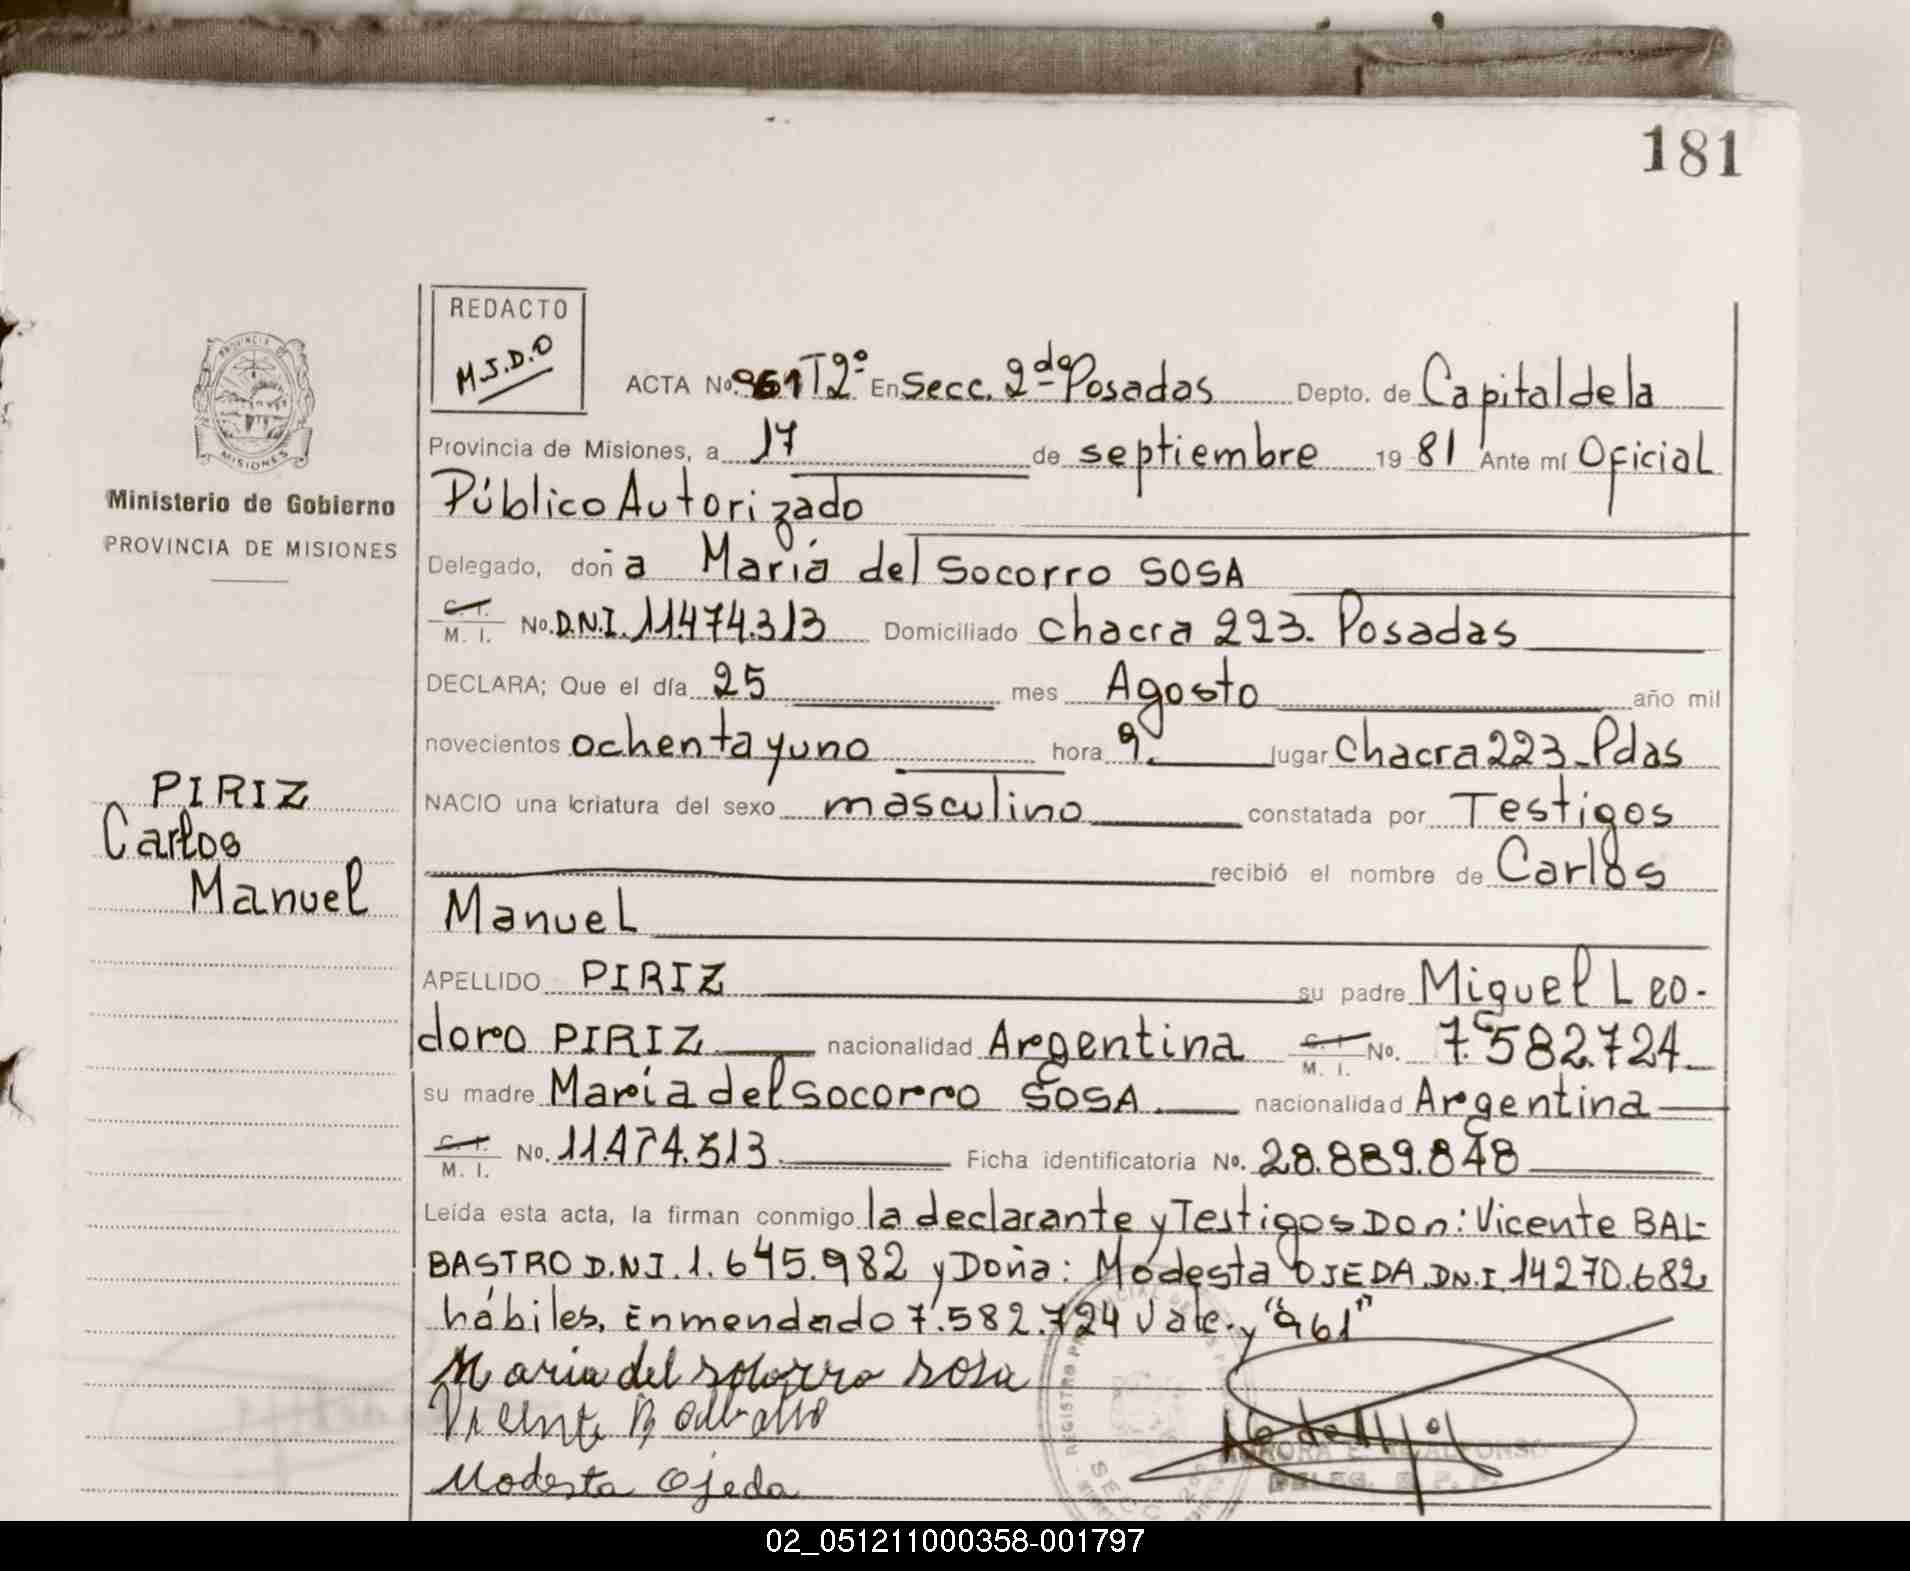 181
REDACTO
M.S.D.O
ACTA No. 961 T2º En Secc. 2da Posadas Depto. de Capital de la
Provincia de Misiones, a 17 de septiembre 19 81 Ante mí Oficial
Público Autorizado
Delegado, doña María del Socorro SOSA
C. I.
M. I. No. D.N.I. 11.474.313 Domiciliado Chacra 223. Posadas
DECLARA; Que el día 25 mes Agosto año mil
novecientos ochenta y uno hora 9. lugar Chacra 223. Pdas
NACIO una criatura del sexo masculino constatada por Testigos
recibió el nombre de Carlos
Manuel
APELLIDO PIRIZ su padre Miguel Leo-
doro PIRIZ nacionalidad Argentina C. I. M. I. No. 7.582.724
su madre María del Socorro SOSA. nacionalidad Argentina
C. I.
M. I. No. 11.474.313. Ficha identificatoria No. 28.889.848
Leída esta acta, la firman conmigo la declarante y Testigos Don: Vicente BAL-
BASTRO D.N.I. 1.645.982 y Doña: Modesta OJEDA. DN.I. 14270.682
hábiles. Enmendado 7.582.724 Vale. y "961"
Maria del socorro sosa
Vicente Balbastro
Modesta Ojeda
PROVINCIA DE
MISIONES
Ministerio de Gobierno
PROVINCIA DE MISIONES
PIRIZ
Carlos
Manuel
02_051211000358-001797